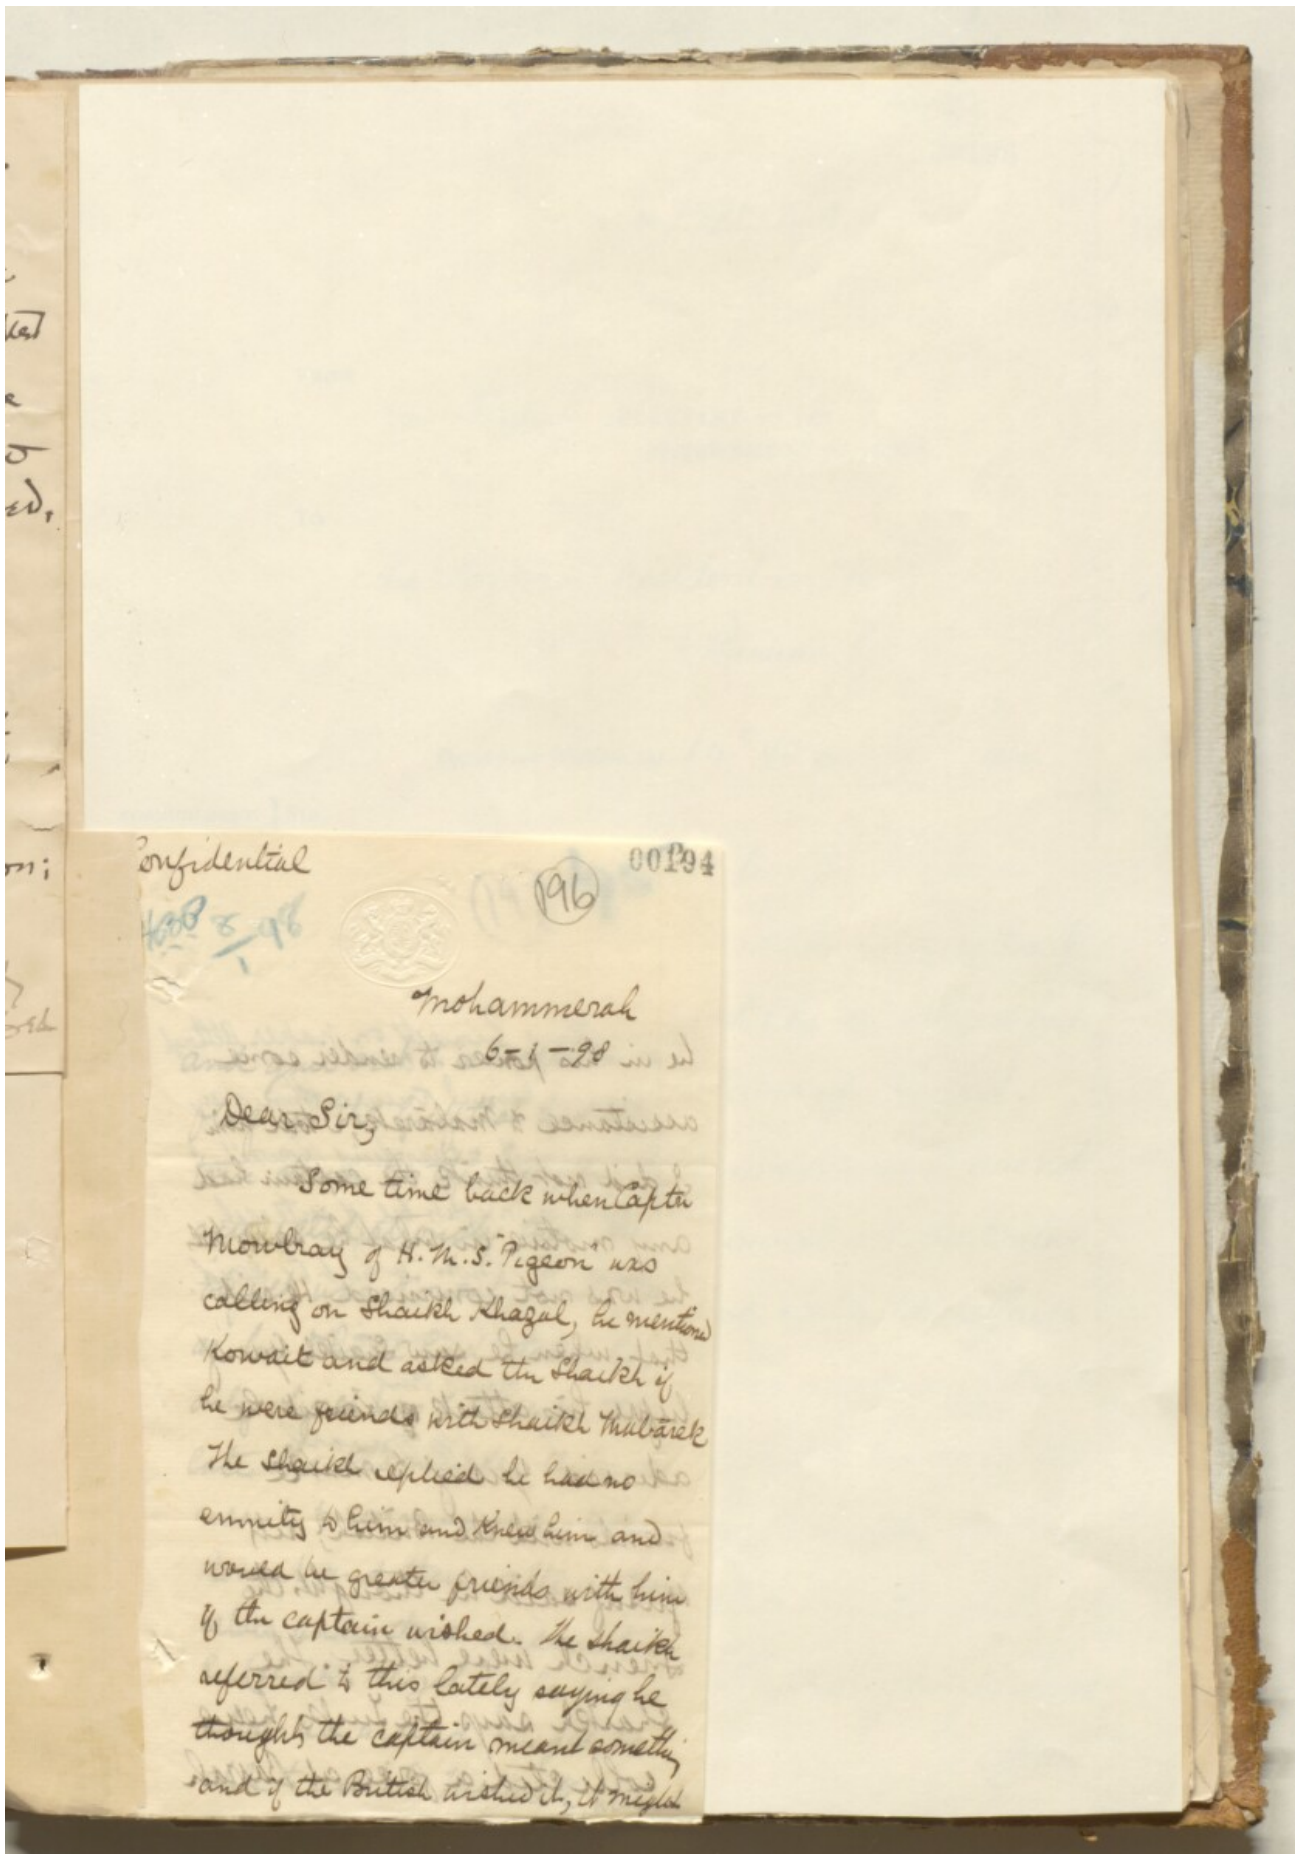 Confidential
00194
196
8/1 98
Mohammerah
6-1-98
Dear Sir,
Some time back when Captn
Mowbray of H.M.S. "Pigeon" was
calling on Shaikh Khazal, he mentioned
Kowait and asked the Shaikh if
he were friends with Shaikh Mubarek
The Shaikh replied he had no
enmity to him and knew him and
would be greater friends with him
if the captain wished. The Shaikh
referred to this lately saying he
thought the captain meant something
and if the British wished it, it might